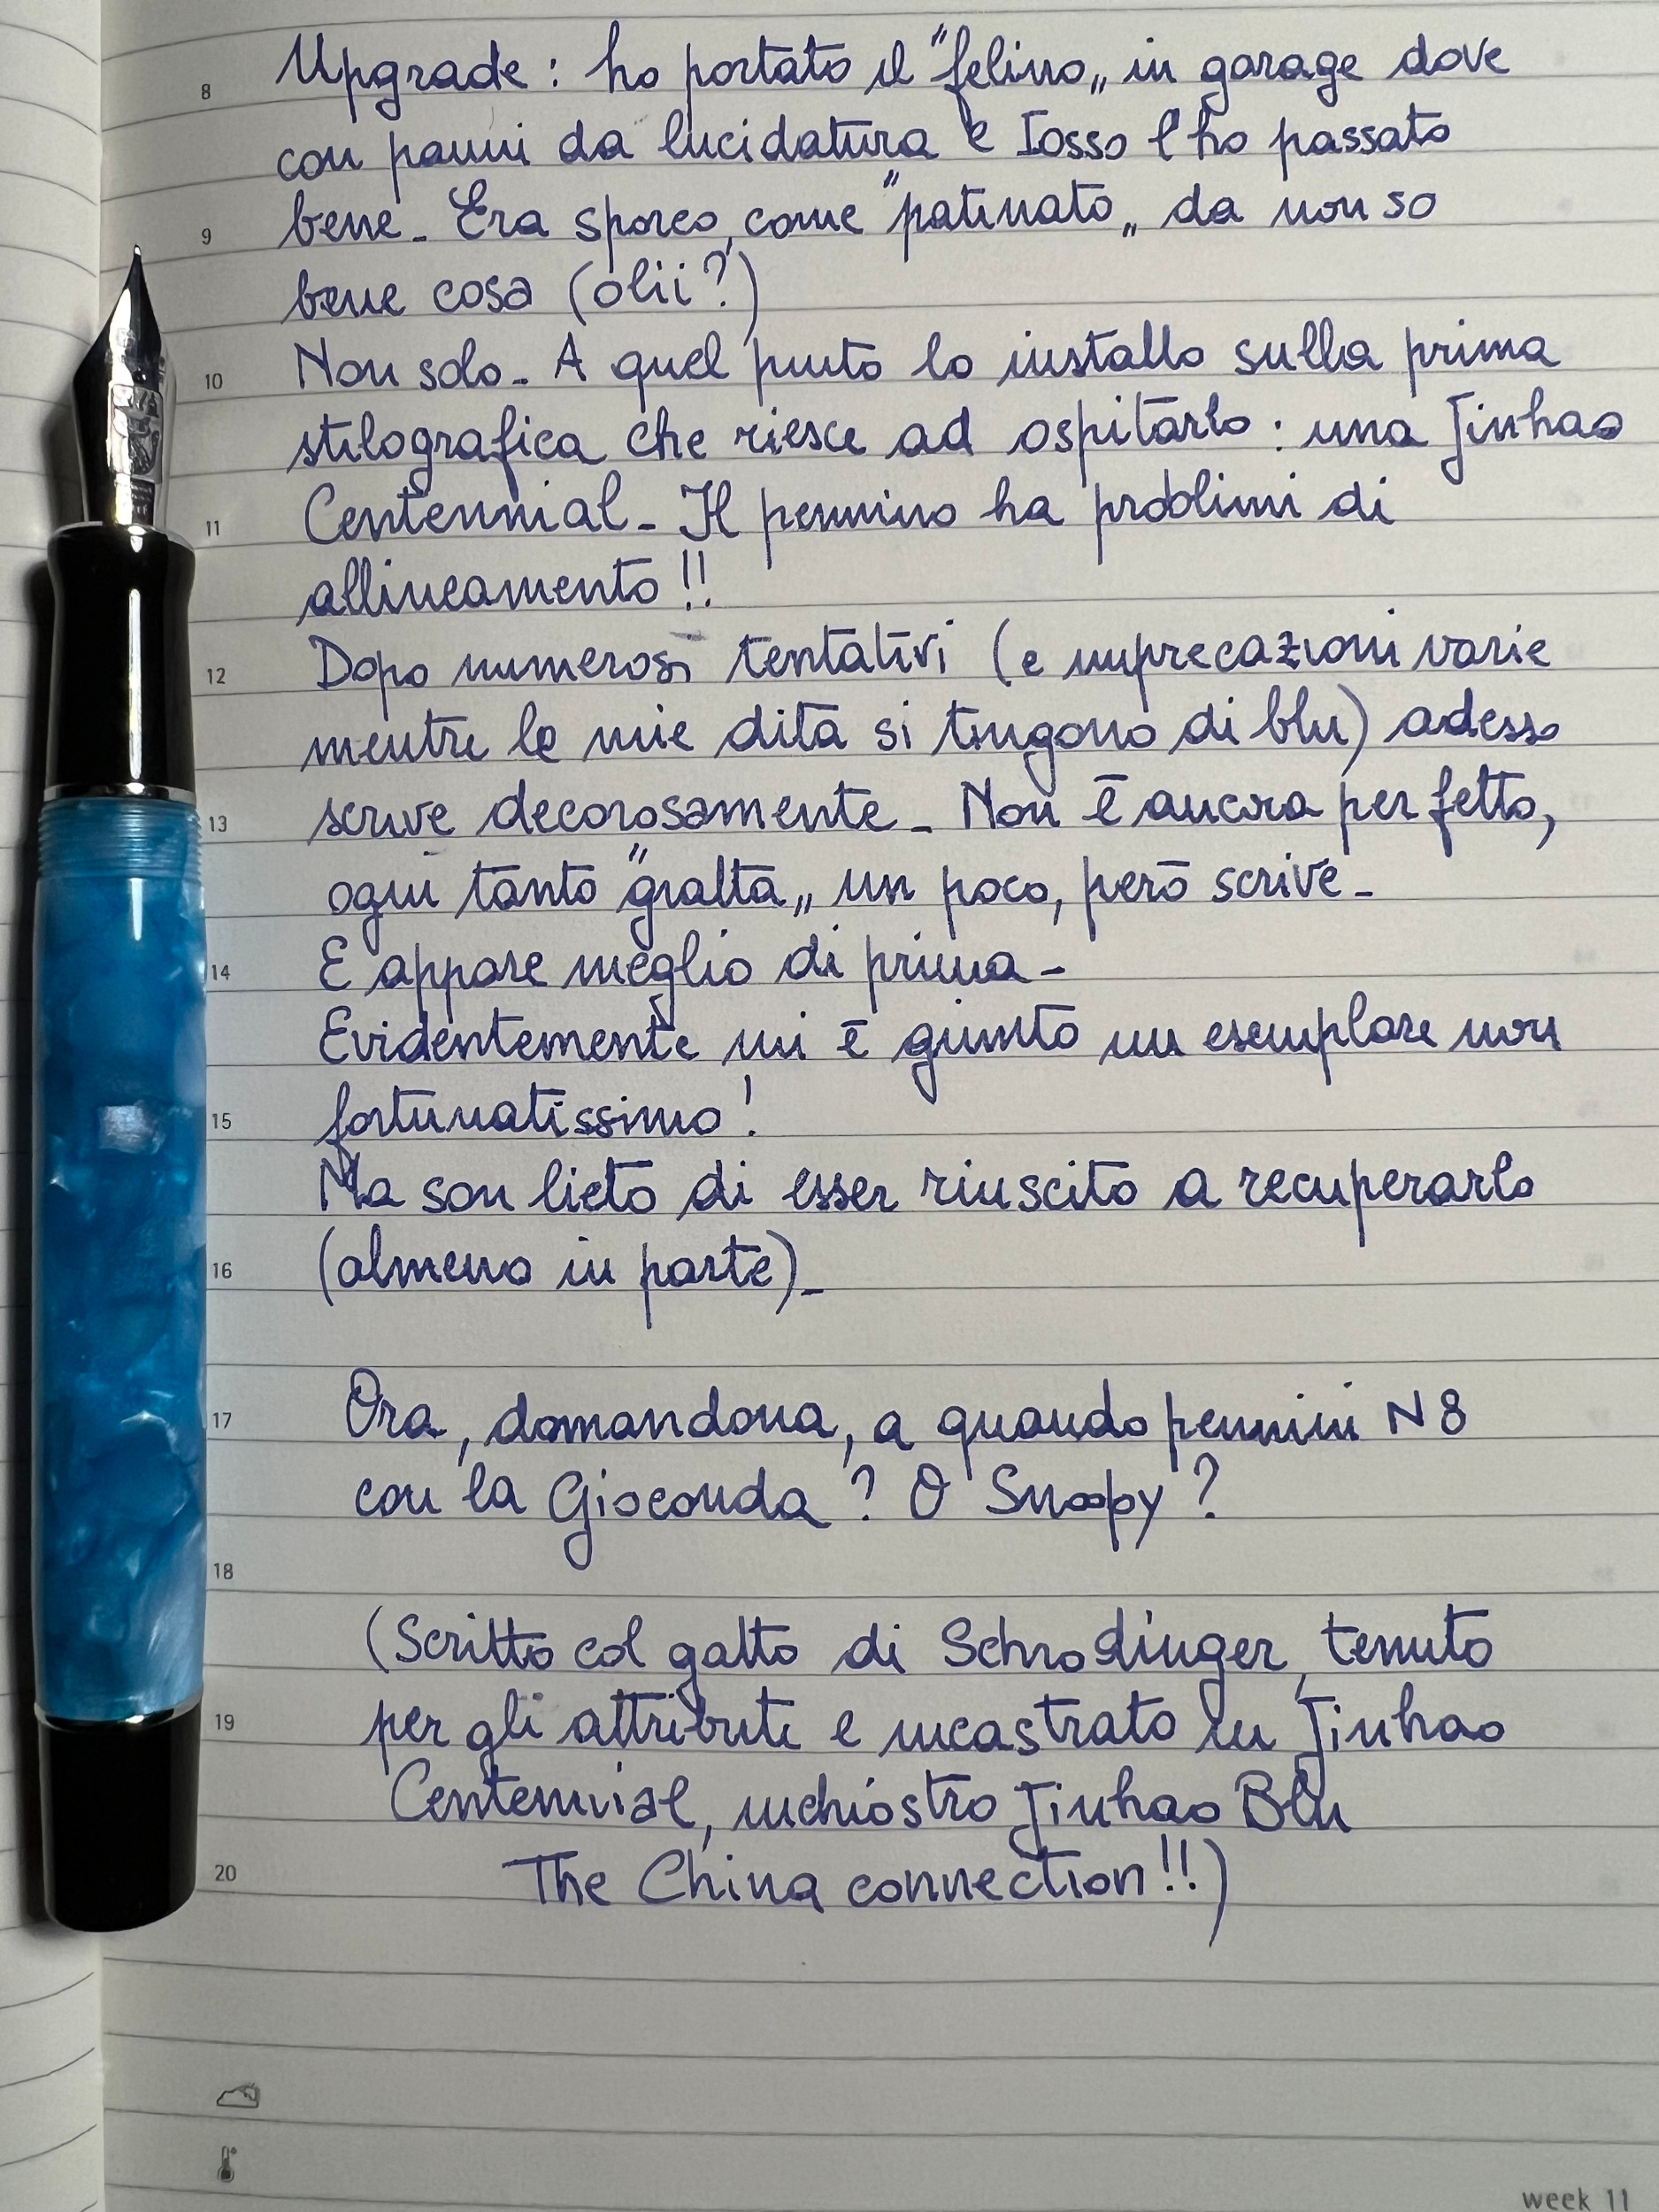 8 Upgrade: ho portato il "felino„ in garage dove
con panni da lucidatura e Iosso l'ho passato
9 bene_ Era sporco, come "patinato„ da non so
bene cosa (olii?)
10 Non solo_ A quel punto lo installo sulla prima
stilografica che riesce ad ospitarlo: una Jinhao
11 Centennial_ Il pennino ha problemi di
allineamento!!
12 Dopo numerosi tentativi (e imprecazioni varie
mentre le mie dita si tingono di blu) adesso
13 scrive decorosamente_ Non è ancora perfetto,
ogni tanto "gratta„ un poco, però scrive_
14 E appare meglio di prima_
Evidentemente mi è giunto un esemplare non
15 fortunatissimo!
Ma son lieto di esser riuscito a recuperarlo
16 (almeno in parte)_
17 Ora, domandona, a quando pennini N 8
con la Gioconda? O Snoopy?
18
(Scritto col gatto di Schrodinger, tenuto
19 per gli attributi e incastrato in Jinhao
Centennial, inchiostro Jinhao Blu
20 The China connection!!)
week 11